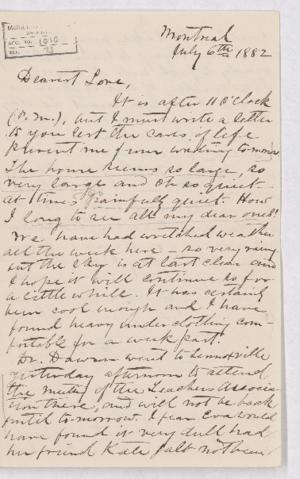 Montreal
July 6th 1882
Dearest Love,
It is after 11 O'Clock
(P.M.), but I must write a letter
to you lest the cares of life
prevent me from waking to-morrow
The house seems so large, so
very large and oh so quiet -
at times painfully quiet. How
I long to see all my dear ones!
We have had wretched weather
all the week here - so very rainy
but the sky is at last clear and
I hope it will continue so for
a little while. It has certainly
been cool enough and I have
found heavy underclothing com-
fortable for a week past.
Dr. Dawson went to Lennoxville
yesterday afternoon to attend
the meeting of the Teachers Associa-
tion there, and will not be back
until to-morrow. I fear Eva would
have found it very dull had
her friend Kate Galt not been